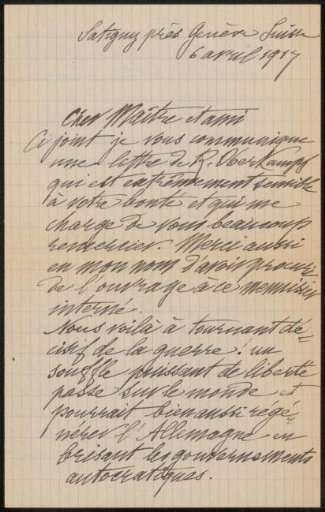 Satigny près Genève Suisse
6 avril 1917
Cher Maître et ami
Ci joint je vous communique
une lettre de R. Oberkampf
qui est extrêmement sensible
à votre bonté et qui me
charge de vous beaucoup
remercier. Merci aussi
en mon nom d'avoir procuré
de l'ouvrage à ce menuisier
interné.
Nous voilà à tournant dé-
cisif de la guerre : un
souffle puissant de liberté
passe sur le monde et
pourrait bien aussi régé-
nérer l'Allemagne en
brisant les gouvernements
autocratiques.